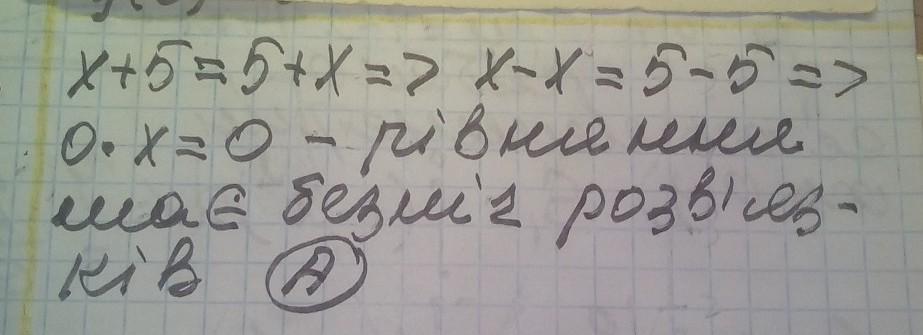 x+5=5+x=> x-x=5-5=>
0·x=0 - рівняння
має безліч розв'яз-
ків А